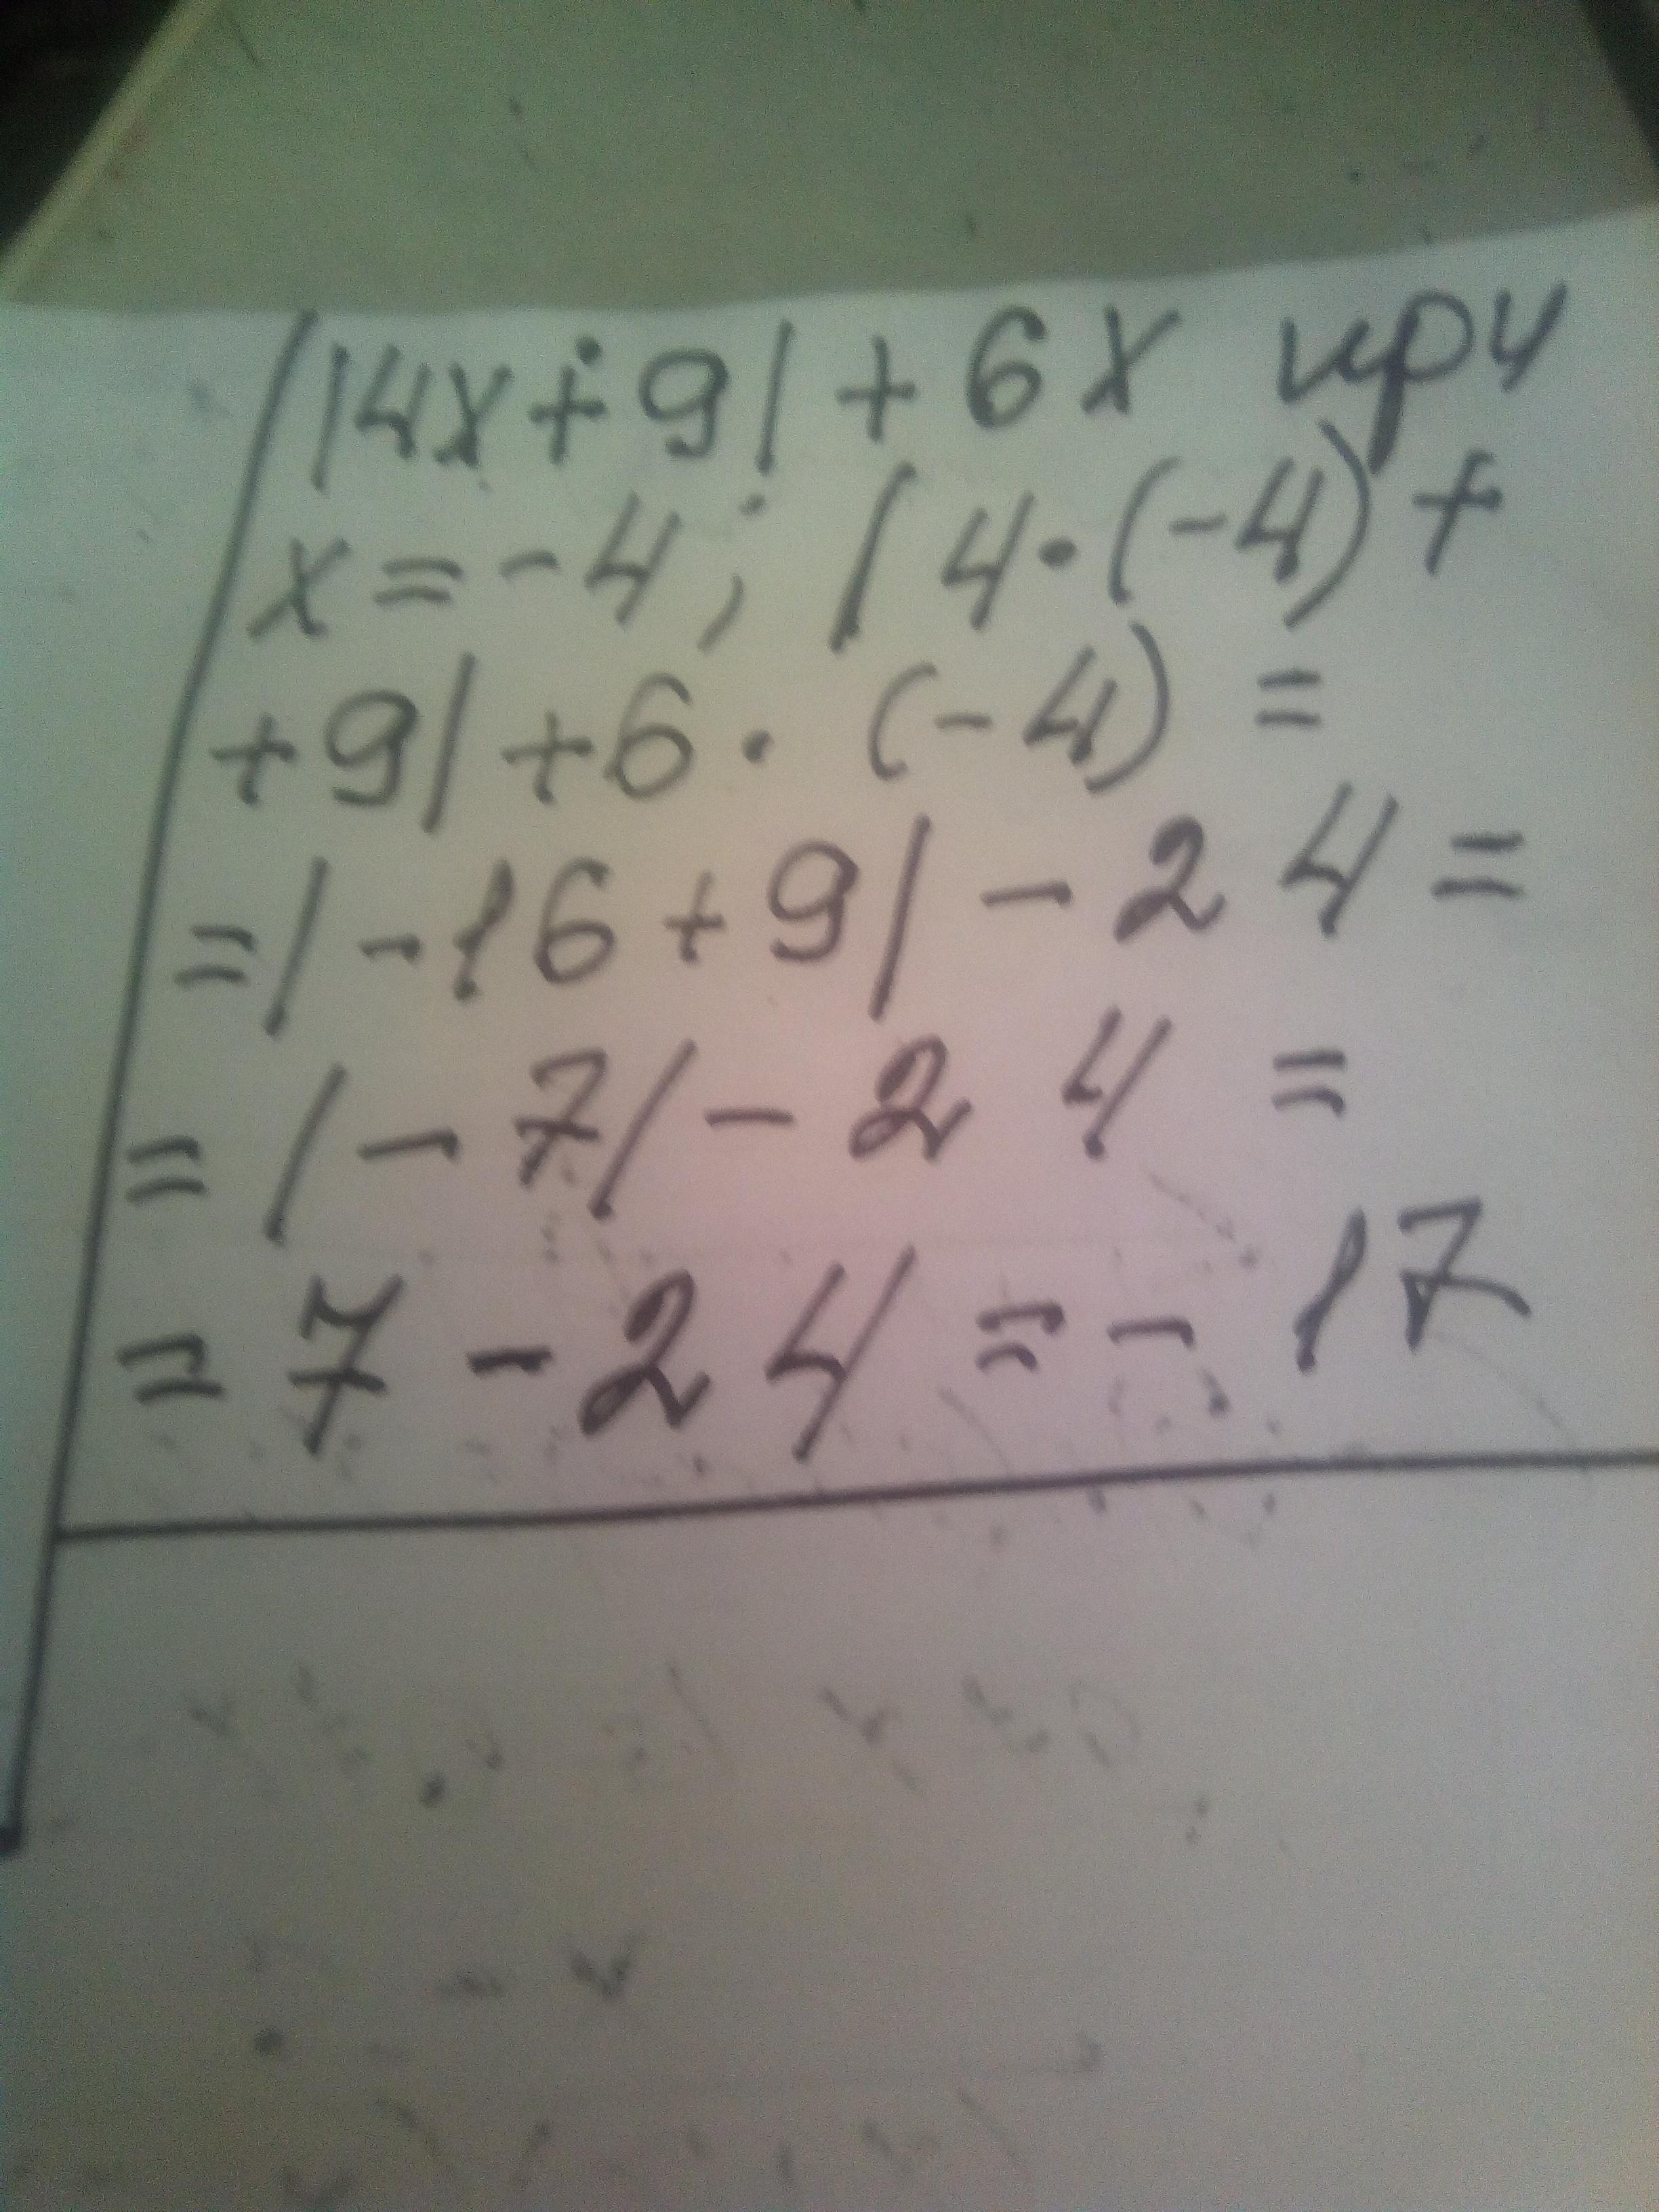 |4x+9|+6x при
x=-4; |4·(-4)+
+9|+6·(-4)=
=|-16+9|-24=
=|-7|-24=
=7-24=-17